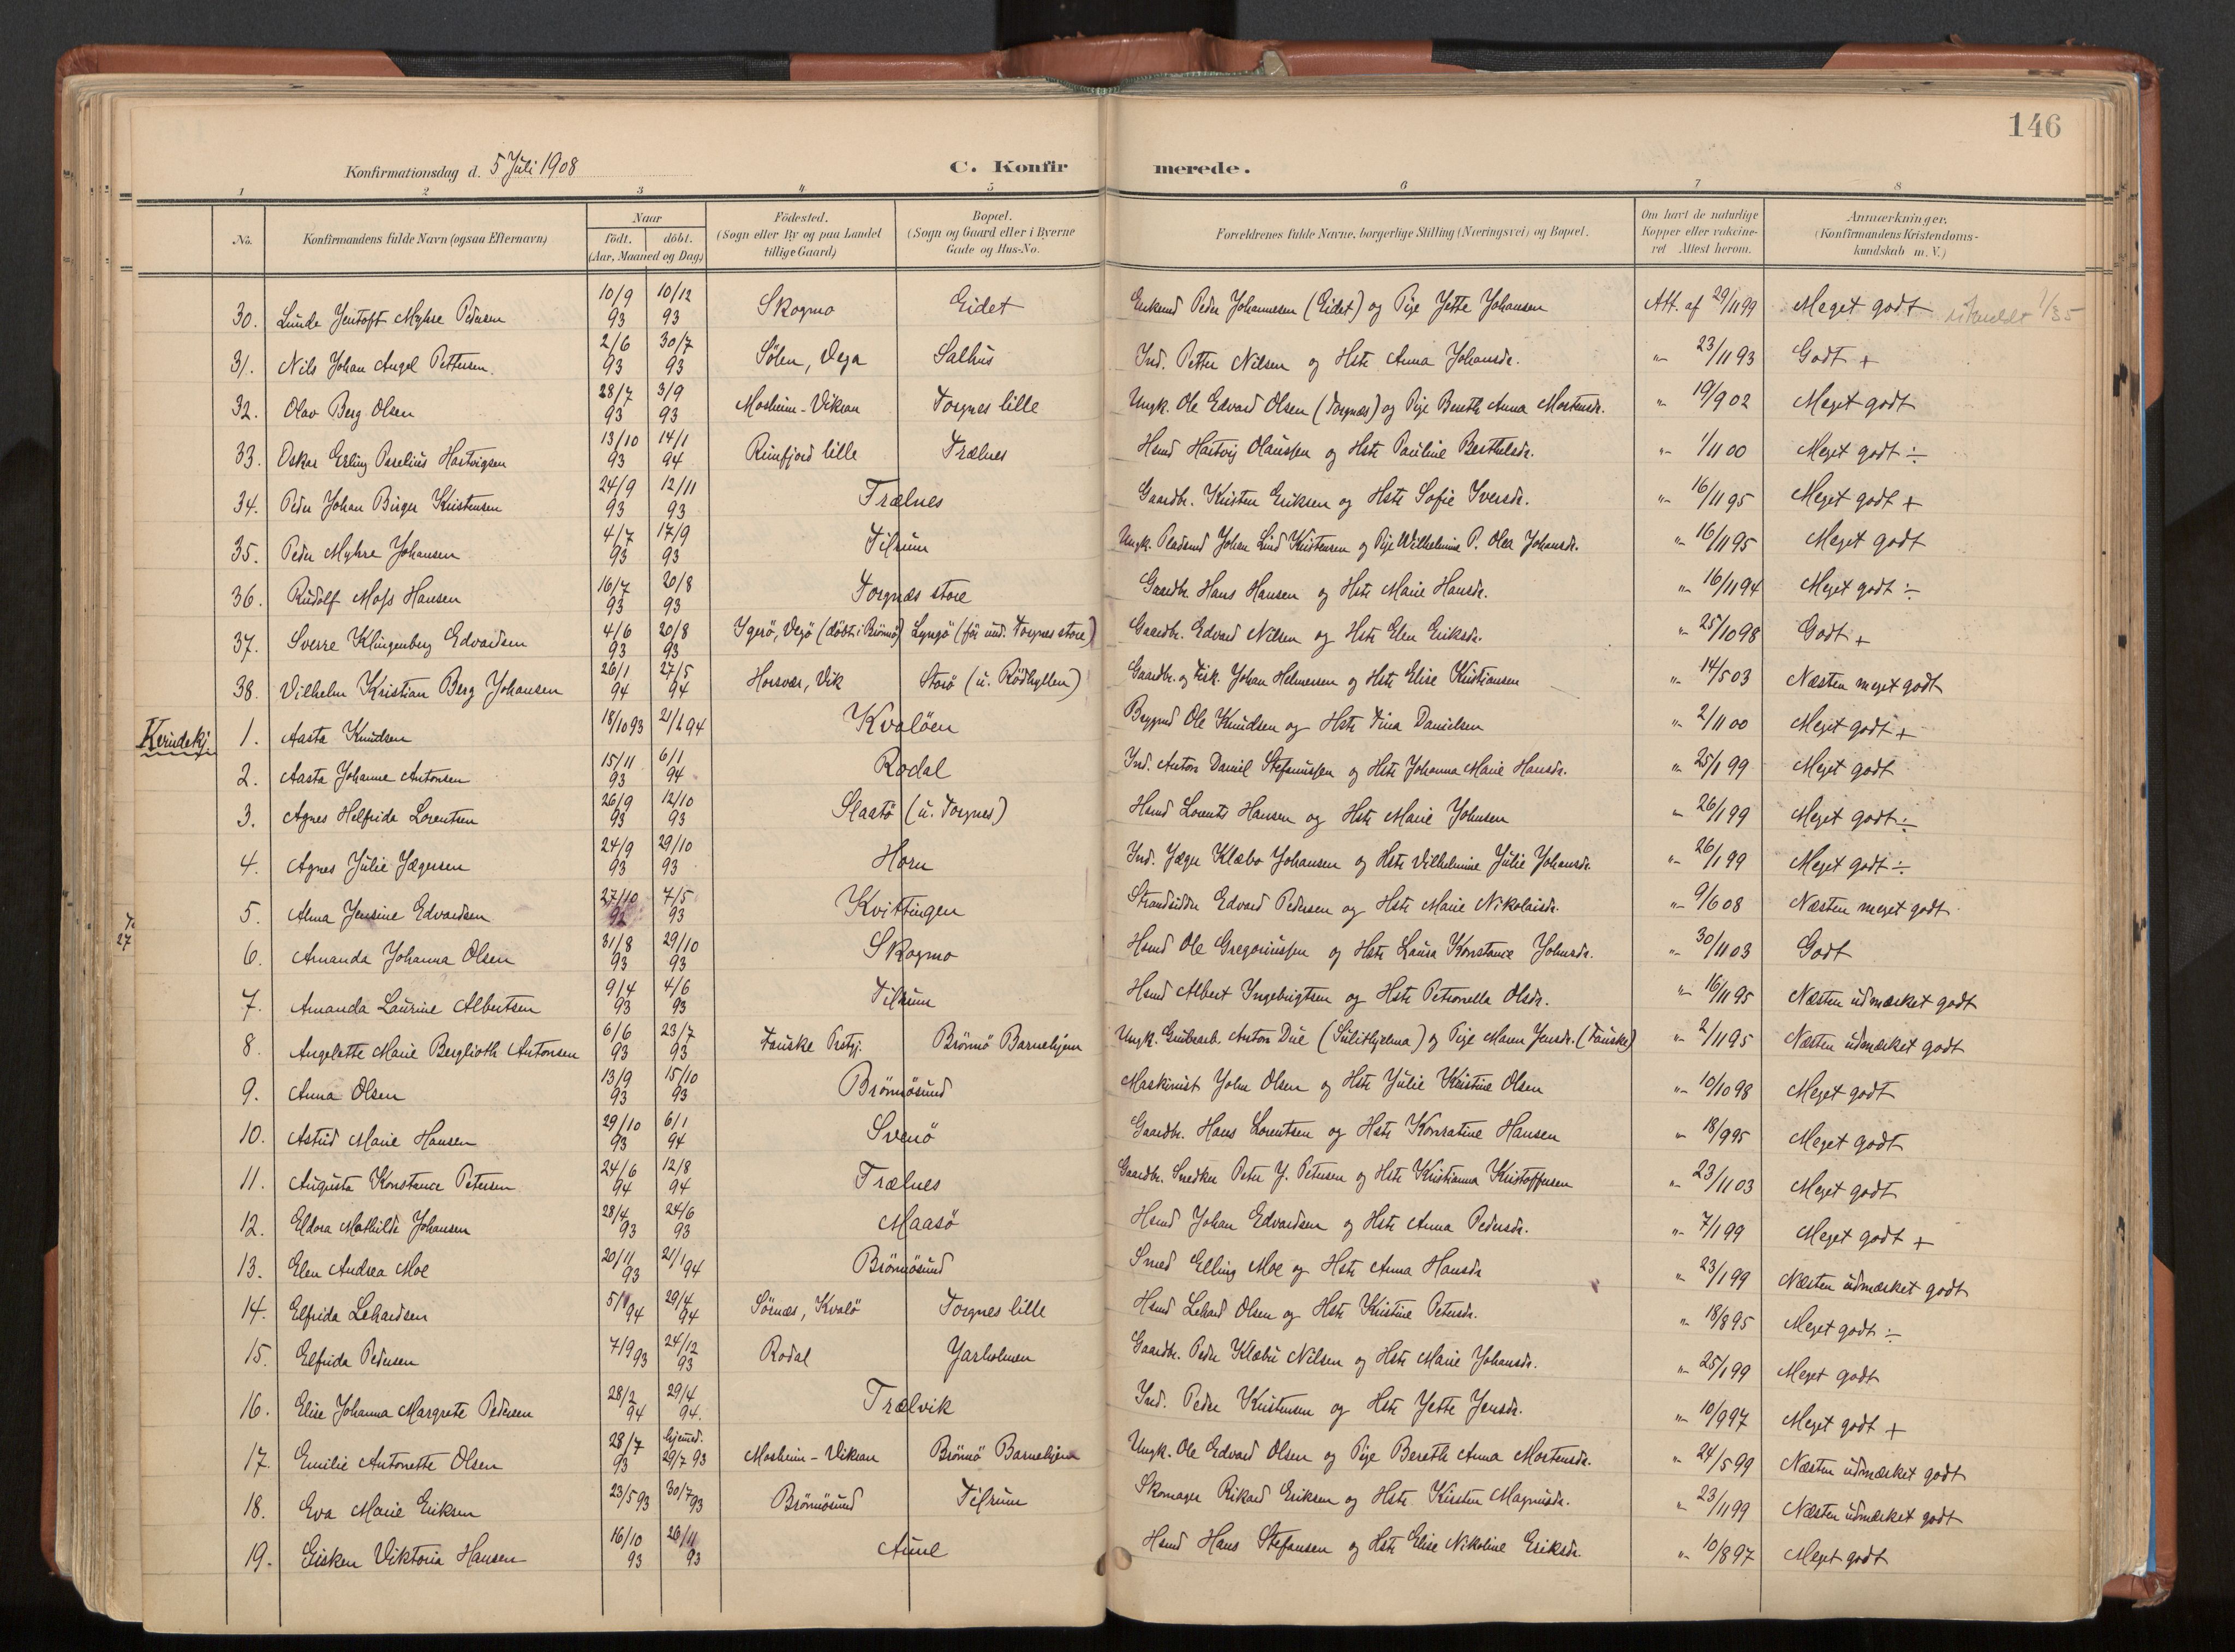 146
Konfirmationsdag d. 5 Juli 1908 C. Konfirmerede.
1 2 3 4 5 6 7 8
No. Konfirmandens fulde Navn (ogsaa Efternavn) Naar født. døbt. (Aar, Maaned og Dag) Födested. (Sogn eller By og paa Landet tillige Gaard) Bopæl. (Sogn og Gaard eller i Byerne Gade og Hus-No. Forældrenes fulde Navne, borgerlige Stilling (Næringsvei) og Bopæl. Om havt de naturlige Kopper eller vakcineret Attest herom. Anmærkninger. (Konfirmandens Kristendomskundskab m. V.)
30. Lunde Jentoft Myhre Pedersen 10/9 93 10/12 93 Skogmo Eidet Enkemd Peder Johannesen (Eidet) og Pige Jette Johansen Att. af 29/11 99 Meget godt 1/35
31. Nils Johan Angel Pettersen. 2/6 93 30/7 93 Sølen, Vega Salhus Ind. Petter Nilsen og Hstr Anna Johansdr. "- 23/11 93 Godt +
32. Olav Berg Olsen 28/7 93 3/9 93 Mosheim-Vikran Torgnes lille Ungk. Ole Edvard Olsen (Torgnæs) og Pige Bereth Anna Mortensdr. "- 19/9 02 Meget godt
33. Oskar Erling Parelius Hartvigsen 13/10 93 14/1 94 Reinfjord lille Trælnes Hsmd Hartvig Olaussen og Hstr Pauline Berthelsdr. "- 1/11 00 Meget godt ÷
34. Peder Johan Birger Kristensen 24/9 93 12/11 93 Trælnes Gaardbr. Kristen Eriksen og Hstr Sofie Iversdr. "- 16/11 95 Meget godt +
35. Peder Myhre Johansen 4/7 93 17/9 93 Tilrum Ungk. Pladsmd Johan Lind Kristensen og Pige Wilhelmine P. Olea Johansdr. "- 16/11 95 Meget godt
36. Rudolf Moss Hansen 16/7 93 20/8 93 Torgnæs store Gaardbr. Hans Hansen og Hstr Marie Hansdr. "- 16/11 94 Meget godt ÷
37. Sverre Klingenberg Edvardsen 4/6 93 20/8 93 Ygerö, Vegö (döbt i Brönnö) Lyngö (før und. Torgnes store) Gaardbr. Edvard Nilsen og Hstr Elen Eriksdr. "- 25/10 98 Godt +
38. Vilhelm Kristian Berg Johansen 26/1 94 27/5 94 Horsvær, Vik Storö (u. Rödhyllen) Gaardbr. og Fisk. Johan Helmersen og Hstr Elise Kristiansen "- 14/5 03 Næsten meget godt
Kvindekj.
1. Aasta Knudsen 18/10 93 21/1 94 Kvalöen Bygmd Ole Knudsen og Hstr Fina Danielsen "- 2/11 00 Meget godt +
2. Aasta Johanne Antonsen 15/11 93 6/1 94 Rodal Ind. Anton Daniel Stefanussen og Hstr Johanna Marie Hansdr. "- 25/1 99 Meget godt
3. Agnes Helfrida Lorentsen 26/9 93 12/10 93 Slaatö (u. Torgnes) Hsmd Lorents Hansen og Hstr Marie Johnsen "- 26/1 99 Meget godt ÷
4. Agnes Julie Jægersen 24/9 93 29/10 93 Horn Ind. Jæger Klæbo Johansen og Hstr Vilhelmine Julie Johansdr. "- 26/1 99 Meget godt ÷
5. Alma Jensine Edvardsen 27/10 92 7/5 93 Kvittingen Strandsidder Edvard Pedersen og Hstr Marie Nikolaisdr. "- 9/6 08 Næsten meget godt
27
6. Amanda Johanna Olsen 31/8 93 29/10 93 Skogmo Hsmd Ole Gregoriussen og Hstr Laura Konstance Johnsdr. "- 30/11 03 Godt
7. Amanda Laurine Albertsen 9/4 93 4/6 93 Tilrum Hsmd Albert Ingebrigtsen og Hstr Petronella Olsdr. "- 16/11 95 Næsten udmærket godt
8. Angelette Marie Berglioth Antonsen 6/6 93 23/7 93 Fauske Prstgj. Brönnö Barnehjem Ungk. Grubearb. Anton Due (Sulithjelma) og Pige Maren Jensdr. (Fauske) "- 2/11 95 Næsten udmærket godt
9. Anna Olsen 13/9 93 15/10 93 Brönnösund Maskinist John Olsen og Hstr Julie Kristine Olsen "- 10/10 98 Meget godt
10. Astrid Marie Hansen 29/10 93 6/1 94 Svenö Gaardbr. Hans Lorentsen og Hstr Konratine Hansen "- 18/9 95 Meget godt
11. Augusta Konstance Petersen 24/6 94 12/8 94 Trælnes Gaardbr. Snedker Peter J. Petersen og Hstr Kristianna Kristoffersen "- 23/11 03 Meget godt
12. Eldora Mathilde Johansen 28/4 93 24/6 93 Maasö Hsmd Johan Edvardsen og Hstr Anna Pedersdr. "- 7/1 99 Meget godt +
13. Elen Andrea Moe 20/11 93 21/1 94 Brönnösund Smed Elling Moe og Hstr Anna Hansdr "- 23/1 99 Næsten udmærket godt
14. Elfrida Lehardsen 5/1 94 29/4 94 Sörnæs, Kvalö Torgnes lille Hsmd Lehard Olsen og Hstr Kristine Petersdr. "- 18/8 95 Meget godt ÷
15. Elfrida Pedersen 7/9 93 24/12 93 Rodal Jarholmen Gaardbr. Peder Klæbu Nilsen og Hstr Marie Johansdr. "- 25/1 99 Meget godt
16. Elise Johanna Margrete Pedersen 28/2 94 29/4 94. Trælvik Ind. Peder Kristensen og Hstr Jette Jensdr. "- 10/9 97 Meget godt +
17. Emilie Antonette Olsen 28/7 93 hjemmed. 29/7 93 Mosheim-Vikran Brönnö Barnehjem Ungk. Ole Edvard Olsen og Pige Bereth Anna Mortensdr. "- 24/5 99 Næsten udmærket godt
18. Eva Marie Eriksen 23/5 93 30/7 93 Brönnösund Tilrum Skomager Rikard Eriksen og Hstr. Kirsten Magnusdr. "- 23/11 99 Næsten udmærket godt
19. Gisken Viktoria Hansen 16/10 93 26/11 93 Aune Hsmd Hans Stefansen og Hstr Elise Nikoline Eriksdr. "- 10/8 97 Meget godt